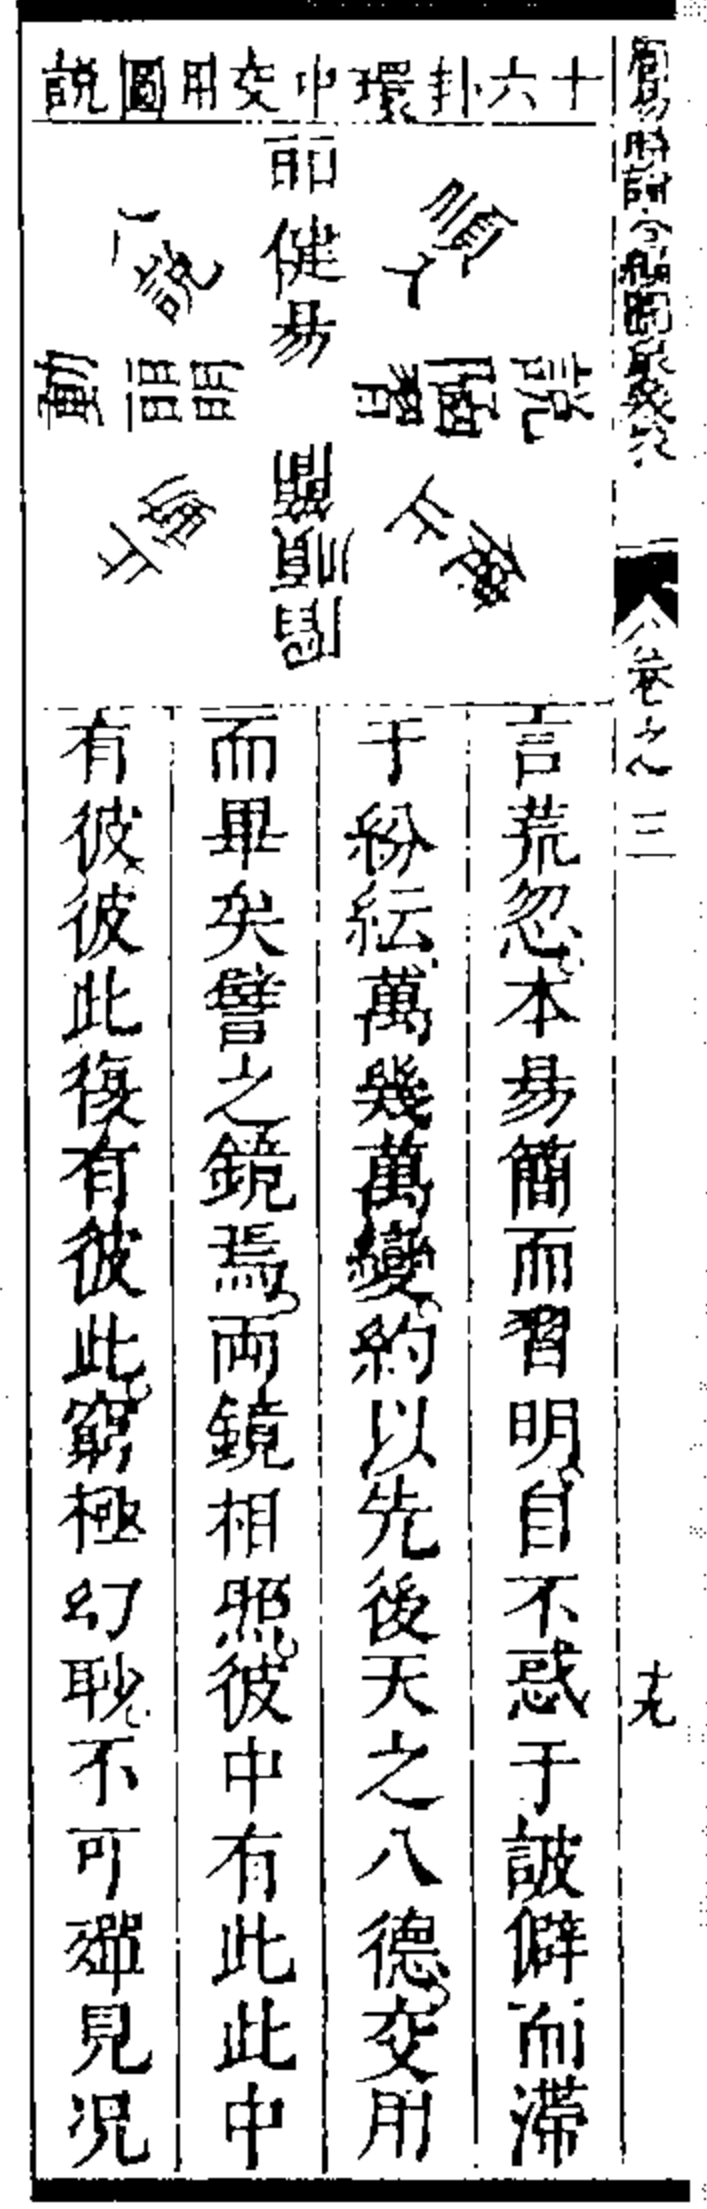 周易時論合編圖象幾表
卷之三
十九
十六卦環中交用圖說
順
健易
說
動 明
說
止
動
止
順
言荒忽本易簡而習明自不惑于詖僻而滯
于紛紜萬幾萬變約以先後天之八德交用
而畢矣譬之鏡焉兩鏡相照彼中有此此中
有彼彼此復有彼此窮極幻眇不可殫見况